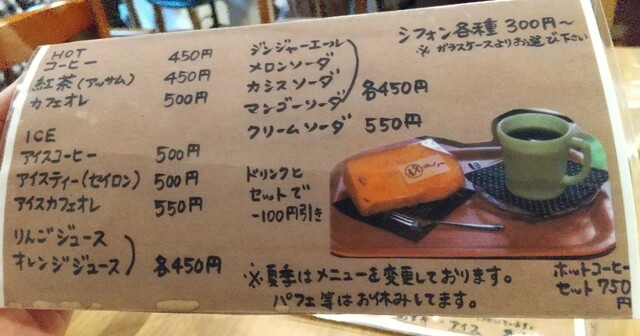 HOT
コーヒー 450円
紅茶(アッサム) 450円
カフェオレ 500円
ICE
アイスコーヒー 500円
アイスティー(セイロン) 500円
アイスカフェオレ 550円
りんごジュース
オレンジジュース 各450円
ジンジャーエール
メロンソーダ
カシスソーダ 各450円
マンゴーソーダ
クリームソーダ 550円
ドリンクと
セットで
-100円引き
シフォン各種 300円~
※ガラスケースよりお選び下さい
ホットコーヒー
セット 750
円
※夏季はメニューを変更しております。
パフェ等はお休みしてます。